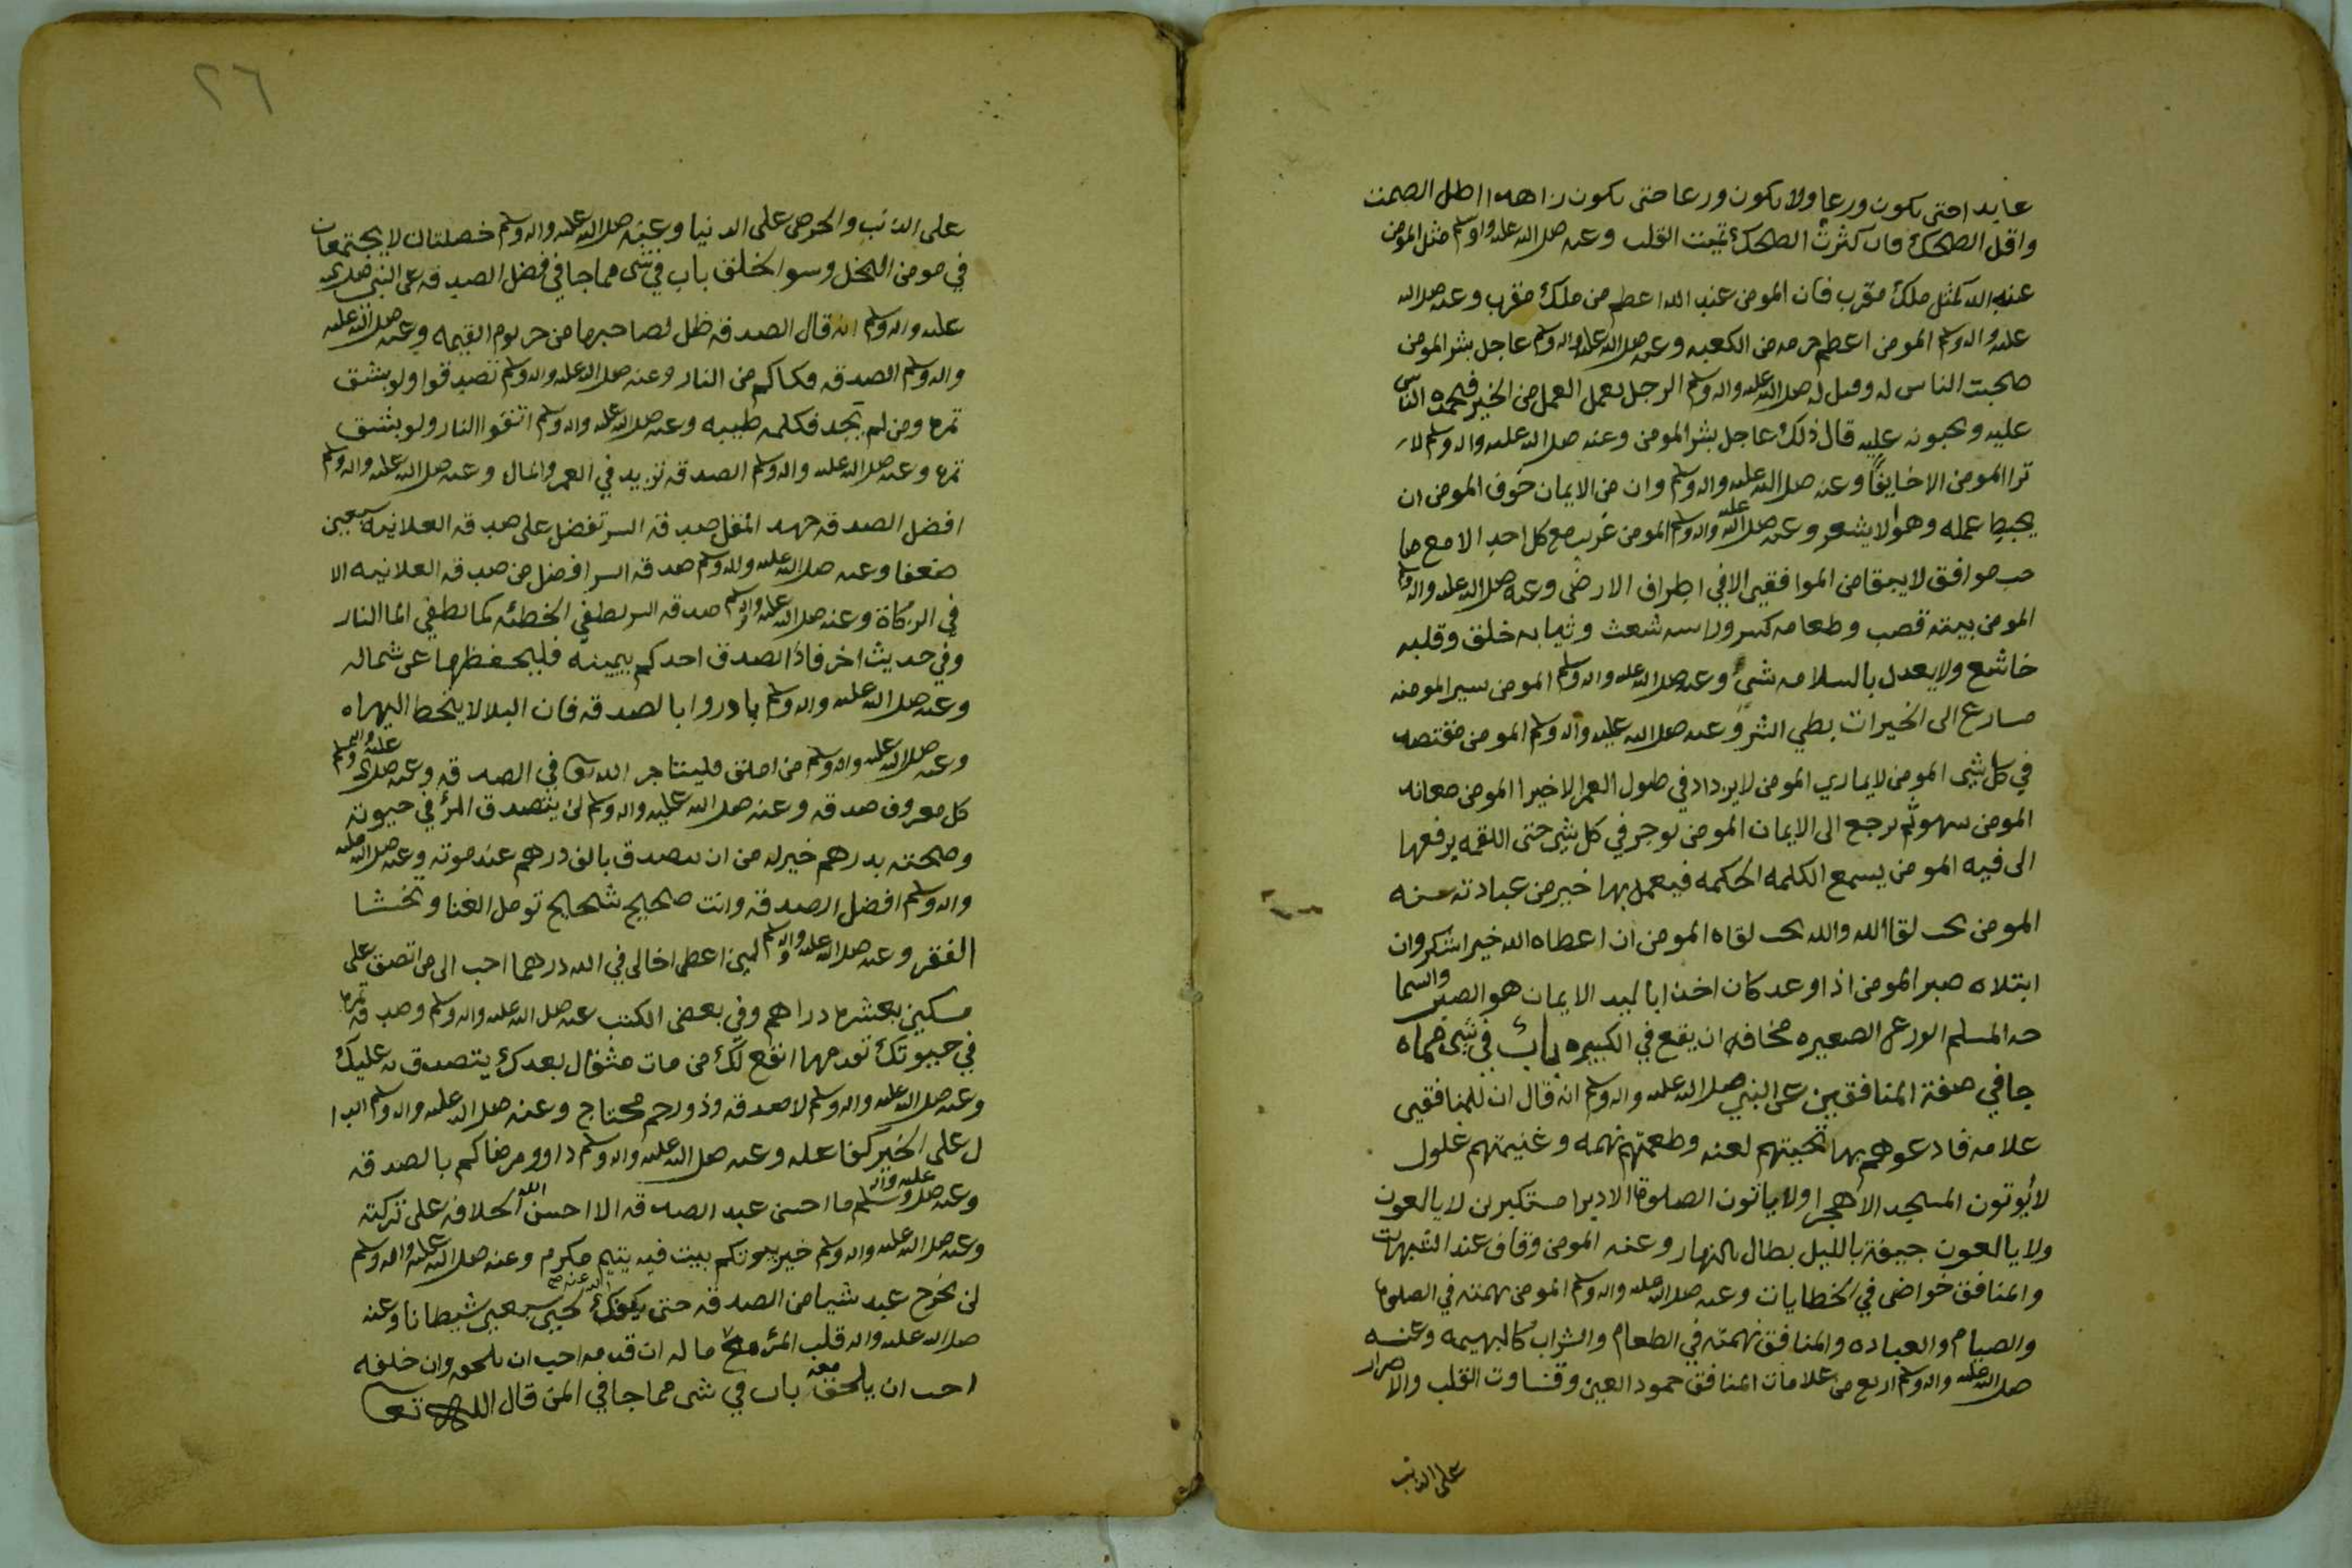 عابدا حتى يكون ورعا ولا يكون ورعا حتى يكون زاهدا اطل الصمت
واقل الضحك فان كثرت الضحك تميت القلب وعنه صلى الله عليه واله وسلم مثل المومن
عند الله كمثل ملك مقرب فان المومن عند الله اعظم من ملك مقرب وعنه صلى الله
عليه واله وسلم المومن اعظم حرمه من الكعبه وعنه صلى الله عليه واله وسلم عاجل بشر المومن
محبت الناس له وقيل له صلى الله عليه واله وسلم الرجل يعمل العمل من الخير فيحمده الناس
عليه ويحبونه عليه قال ذلك عاجل بشر المومن وعنه صلى الله عليه واله وسلم لا
ترا المومن الا خايفا وعنه صلى الله عليه واله وسلم وان من الايمان خوف المومن ان
يحبط عمله وهو لا يشعر وعنه صلى الله عليه واله وسلم المومن غريب مع كل احد الا مع صا
حب موافق لا يبقا من الموافقين الا في اطراف الارض وعنه صلى الله عليه واله وسلم
المومن بيته قصب وطعامه كسر وراسه شعث وثيابه خلق وقلبه
خاشع ولا يعدل بالسلامه شي وعنه صلى الله عليه واله وسلم المومن سير المومنه
مسارع الى الخيرات بطي الشر وعنه صلى الله عليه واله وسلم المومن مقتصد
في كل شي المومن لا يماري المومن لا يزداد في طول العمر الا خيرا المومن معانه
المومن سهو ثم يرجع الى الايمان المومن يوجر في كل شي حتى اللقمه يرفعها
الى فيه المومن يسمع الكلمه الحكمه فيعمل بها خير من عبادته سنه
المومن يحب لقا الله والله يحب لقاه المومن ان اعطاه الله خيرا شكر وان
ابتلاه صبر المومن اذا وعد كان اخذا باليد الايمان هو الصبر والسما
حه المسلم الورع الصغيره مخافه ان يقع في الكبيره باب في شي مما
جا في صفة المنافقين عن النبي صلى الله عليه واله وسلم انه قال ان للمنافقين
علامه فادعوهم بها تحيتهم لعنه وطعمتهم نهمه وغنيمتهم غلول
لا يوتون المسجد الا هجرا ولا ياتون الصلوة الا دبرا مستكبرين لا يالعون
ولا يالعون جيفة بالليل بطال بالنهار وعنه المومن وقاف عند الشبهات
والمنافق خواض في الخطايات وعنه صلى الله عليه واله وسلم المومن نهمته في الصلوة
والصيام والعباده والمنافق نهمته في الطعام والشراب كالبهيمه وعنه
صلى الله عليه واله وسلم اربع من علامات المنافق جمود العين وقساوت القلب والاصرار
على الذنب
٢٦
على الذنب والحرص على الدنيا وعنه صلى الله عليه واله وسلم خصلتان لا يجتمعان
في مومن البخل وسوا الخلق باب في شي مما جا في فضل الصدقه عن النبي صلى الله
عليه واله وسلم انه قال الصدقه ظل لصاحبها من حر يوم القيمه وعنه صلى الله عليه
واله وسلم الصدقه فكاكم من النار وعنه صلى الله عليه واله وسلم تصدقوا ولو بشق
تمره ومن لم يجد فكلمه طيبه وعنه صلى الله عليه واله وسلم اتقوا النار ولو بشق
تمره وعنه صلى الله عليه واله وسلم الصدقه تزيد في العمر والمال وعنه صلى الله عليه واله وسلم
افضل الصدقه جهد المقل صدقه السر تفضل على صدقه العلانيه سبعين
ضعفا وعنه صلى الله عليه واله وسلم صدقه السر افضل من صدقه العلانيه الا
في الزكاة وعنه صلى الله عليه واله وسلم صدقه السر تطفي الخطئه كما يطفي الما النار
وفي حديث اخر فاذا الصدق احدكم بيمينه فليحفظها عن شماله
وعنه صلى الله عليه واله وسلم بادروا بالصدقه فان البلا لا يتخطا اليها
وعنه صلى الله عليه واله وسلم من املق فليتاجر الله تعا في الصدقه وعنه صلى الله عليه واله وسلم
كل معروف صدقه وعنه صلى الله عليه واله وسلم لئن يتصدق المرء في حيوته
وصحته بدرهم خير له من ان يتصدق بالف درهم عند موته وعنه صلى الله عليه
واله وسلم افضل الصدقه وانت صحيح شحيح تومل الغنا وتخشا
الفقر وعنه صلى الله عليه واله وسلم لين اعطى اخا لي في الله درهما احب الي من اتصدق على
مسكين بعشره دراهم وفي بعض الكتب عنه صلى الله عليه واله وسلم وصدقه تمره
في حيوتك تقدمها انفع لك من مات مثقال بعدك يتصدق به عليك
وعنه صلى الله عليه واله وسلم لا صدقه وذو رحم محتاج وعنه صلى الله عليه واله وسلم الدا
ل على الخير كفاعله وعنه صلى الله عليه واله وسلم داوو مرضاكم بالصدقه
وعنه صلى الله عليه واله وسلم ما احسن عبد الصدقه الا احسن الله الخلافه على تركته
وعنه صلى الله عليه واله وسلم خير بيوتكم بيت فيه يتيم مكرم وعنه صلى الله عليه واله وسلم
لن يخرج عبد شيا من الصدقه حتى يفك لحيي سبعين شيطانا وعنه
صلى الله عليه واله قلب المرء مع ماله ان قدمه احب ان يلحقه وان خلفه
احب ان يلحق معه باب في شي مما جا في المن قال الله تعا